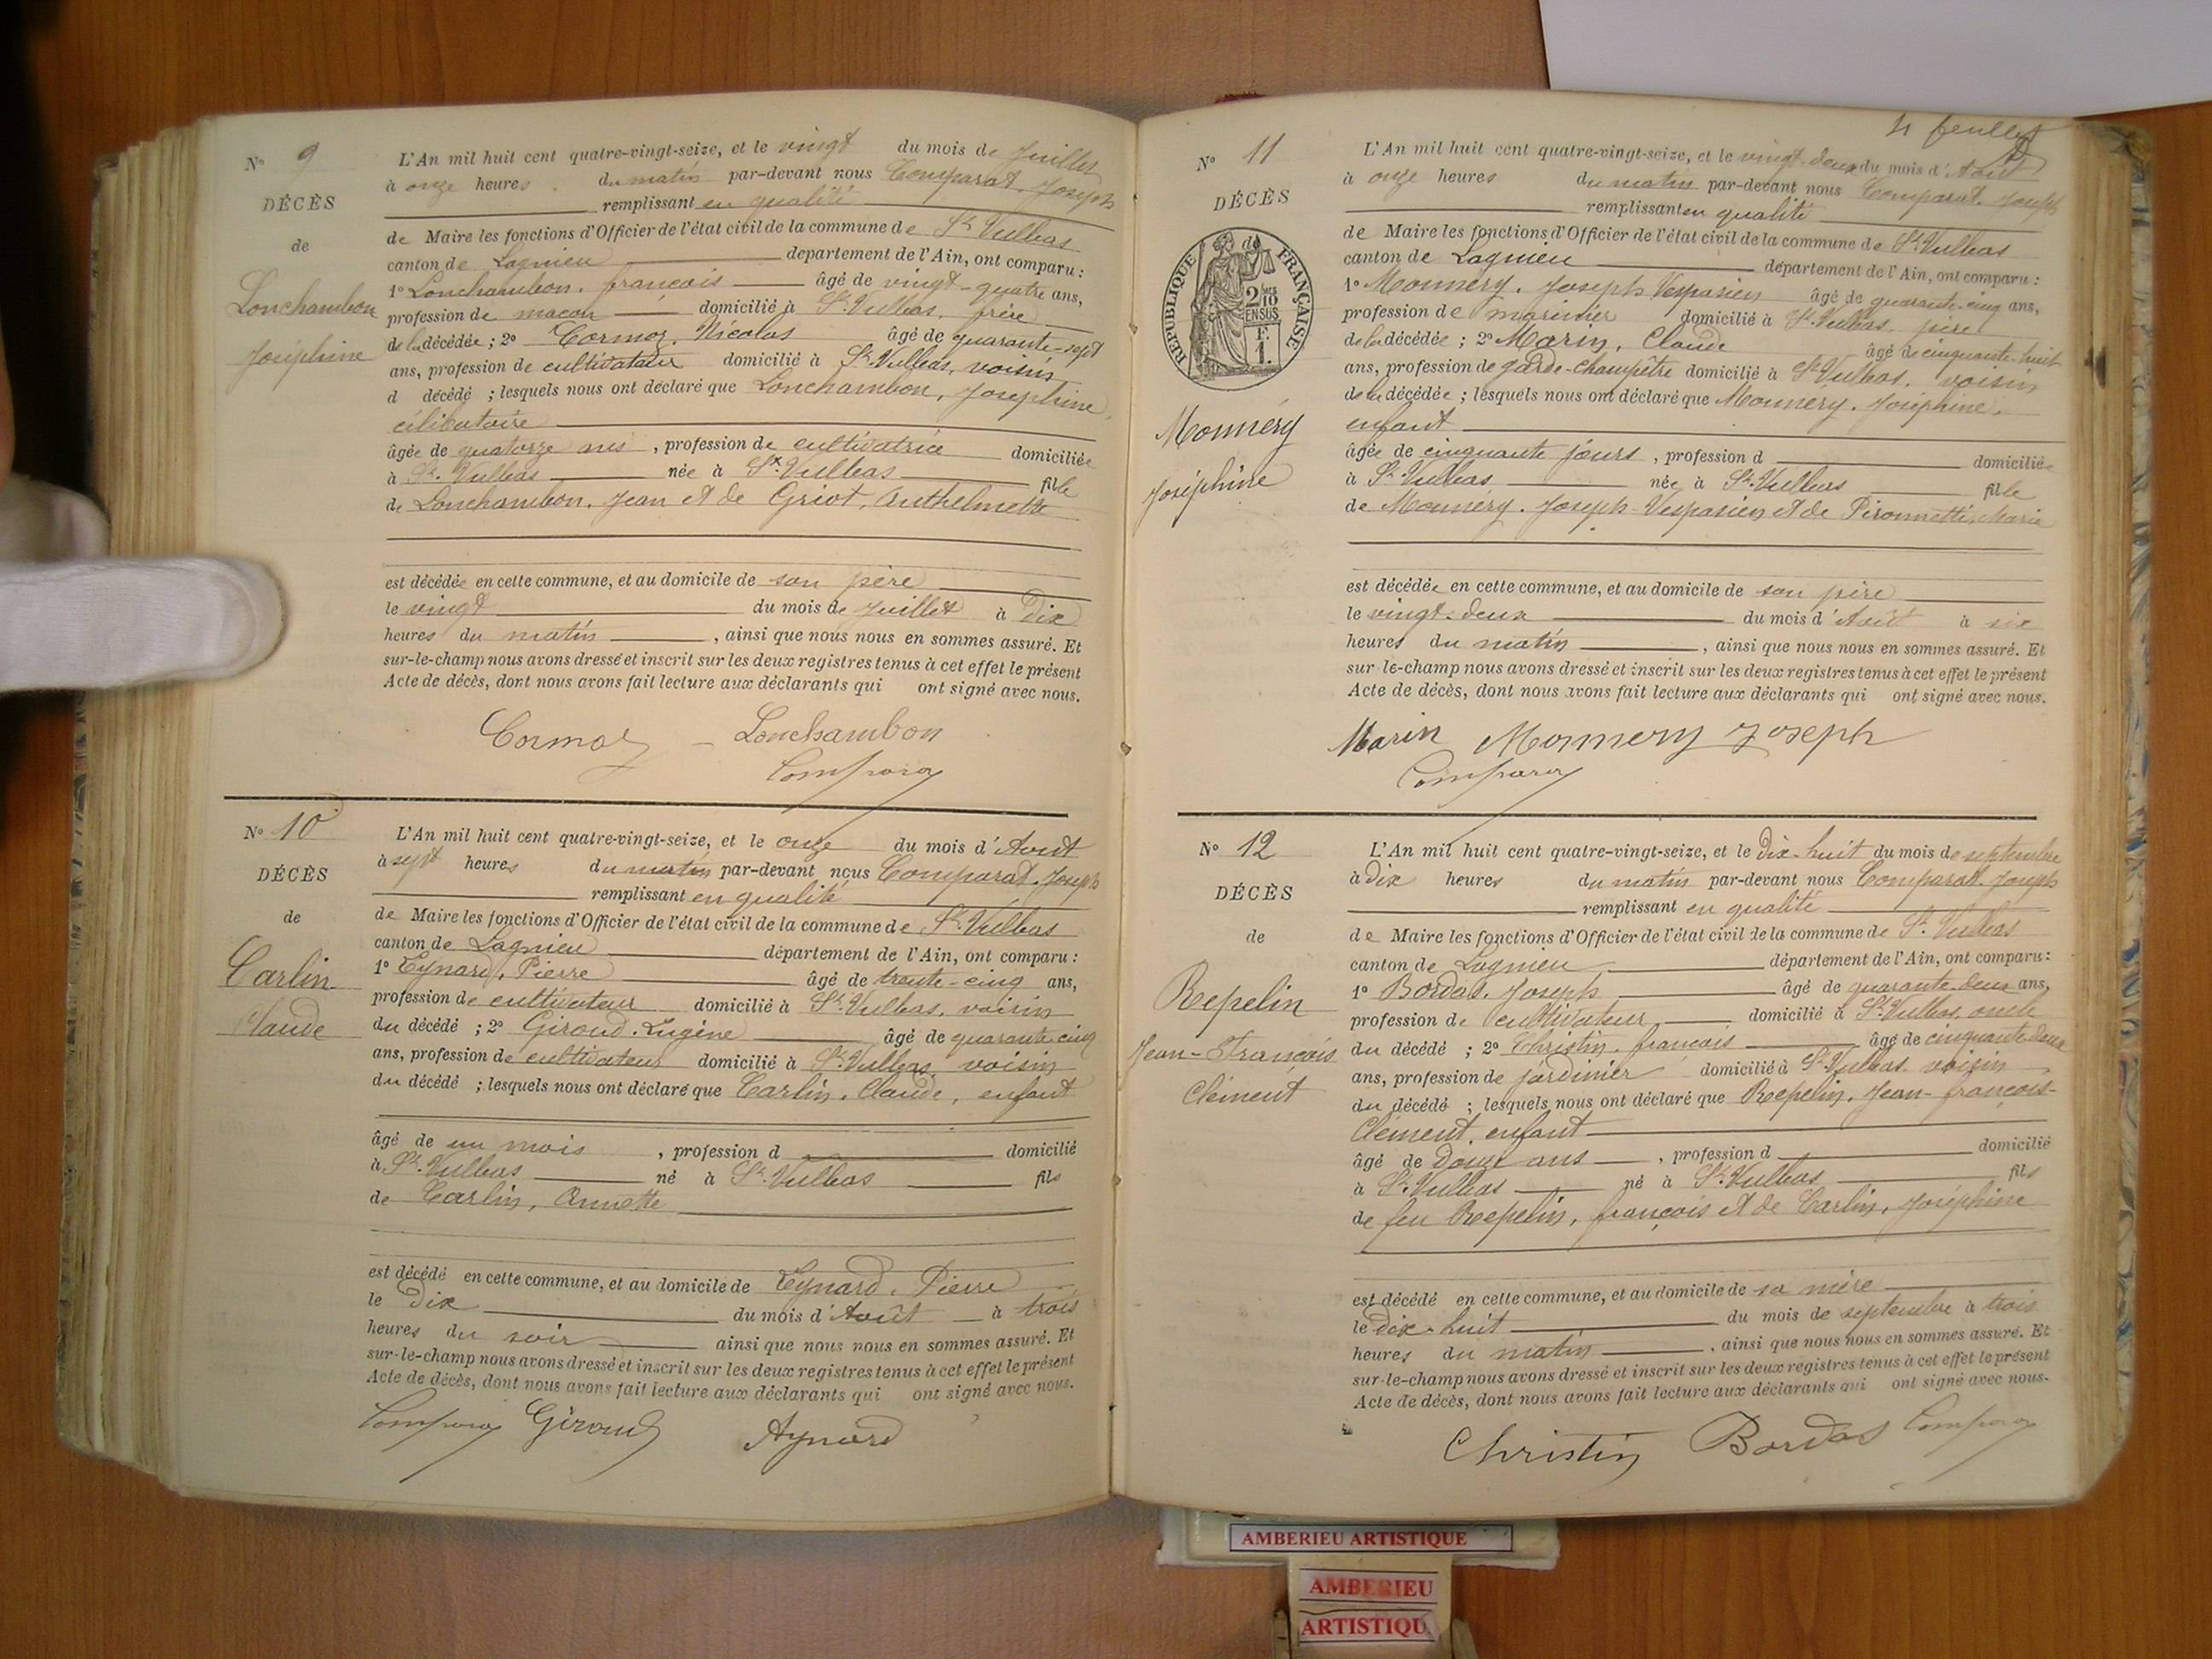 N° 9
DÉCÈS
de
Lonchambon
Joséphine
L'An mil huit cent quatre-vingt-seize, et le vingt du mois de Juillet
à onze heures du matin par-devant nous Comparat, Joseph
remplissant en qualité
de Maire les fonctions d'Officier de l'état civil de la commune de St Vulbas
canton de Lagnieu département de l'Ain, ont comparu :
1° Lonchambon, françois âgé de vingt-quatre ans,
profession de maçon domicilié à St Vulbas, frère
de la décédée ; 2° Cormoz, Nicolas âgé de quarante-sept
ans, profession de cultivateur domicilié à St Vulbas, voisin
d décédé ; lesquels nous ont déclaré que Lonchambon, Josephine,
célibataire
âgée de quatorze ans , profession de cultivatrice domiciliée
à St. Vulbas née à St. Vulbas fille
de Lonchambon, Jean et de Griot, Anthelmette
est décédée en cette commune, et au domicile de son père
le vingt du mois de Juillet à Dix
heures du matin , ainsi que nous nous en sommes assuré. Et
sur-le-champ nous avons dressé et inscrit sur les deux registres tenus à cet effet le présent
Acte de décès, dont nous avons fait lecture aux déclarants qui ont signé avec nous.
Cormoz Lonchambon
Comparat
N° 10
DÉCÈS
de
Carlin
Claude
L'An mil huit cent quatre-vingt-seize, et le onze du mois d'Août
à sept heures du matin par-devant nous Comparat, Joseph
remplissant en qualité
de Maire les fonctions d'Officier de l'état civil de la commune de St. Vulbas
canton de Lagnieu département de l'Ain, ont comparu :
1° Eynard, Pierre âgé de trente-cinq ans,
profession de cultivateur domicilié à St. Vulbas, voisin
du décédé ; 2° Giroud, Eugène âgé de quarante cinq
ans, profession de cultivateur domicilié à St. Vulbas, voisin
du décédé ; lesquels nous ont déclaré que Carlin, Claude, enfant
âgé de un mois , profession d domicilié
à St. Vulbas né à St. Vulbas fils
de Carlin, Annette
est décédé en cette commune, et au domicile de Eynard, Pierre
le Dix du mois d'Août à trois
heures du soir ainsi que nous nous en sommes assuré. Et
sur-le-champ nous avons dressé et inscrit sur les deux registres tenus à cet effet le présent
Acte de décès, dont nous avons fait lecture aux déclarants qui ont signé avec nous.
Comparat Giroud Aynard
11 feuillet
N° 11
DÉCÈS
de
RÉPUBLIQUE FRANÇAISE
2/10 EN SUS
F.
1.
Monnéry
Joséphine
L'An mil huit cent quatre-vingt-seize, et le vingt-deux du mois d'Août
à onze heures du matin par-devant nous Comparat, Joseph
remplissant en qualité
de Maire les fonctions d'Officier de l'état civil de la commune de St. Vulbas
canton de Lagnieu département de l'Ain, ont comparu :
1° Monnéry, Joseph Vespasien âgé de quarante-cinq ans,
profession de marinier domicilié à St. Vulbas, père
de la décédée ; 2° Marin, Claude âgé de cinquante-huit
ans, profession de garde-champêtre domicilié à St. Vulbas, voisin
de la décédée ; lesquels nous ont déclaré que Monnéry, Joséphine,
enfant
âgée de cinquante jours , profession d domiciliée
à St. Vulbas née à St. Vulbas fille
de Monnéry, Joseph-Vespasien et de Pironnetti, Marie
est décédée en cette commune, et au domicile de son père
le vingt-deux du mois d'Août à six
heures du matin , ainsi que nous nous en sommes assuré. Et
sur-le-champ nous avons dressé et inscrit sur les deux registres tenus à cet effet le présent
Acte de décès, dont nous avons fait lecture aux déclarants qui ont signé avec nous.
Marin Monnery Joseph
Comparat
N° 12
DÉCÈS
de
Repelin
Jean-François
Clément
L'An mil huit cent quatre-vingt-seize, et le Dix-huit du mois de septembre
à Dix heures du matin par-devant nous Comparat, Joseph
remplissant en qualité
de Maire les fonctions d'Officier de l'état civil de la commune de St. Vulbas
canton de Lagnieu département de l'Ain, ont comparu :
1° Bordas, Joseph âgé de quarante-deux ans,
profession de cultivateur domicilié à St. Vulbas, oncle
du décédé ; 2° Christin, françois âgé de cinquante-deux
ans, profession de jardinier domicilié à St. Vulbas, voisin
du décédé ; lesquels nous ont déclaré que Repelin, Jean-françois-
Clément, enfant
âgé de Douze ans , profession d domicilié
à St. Vulbas né à St. Vulbas fils
de feu Repelin, françois et de Carlin, Joséphine
est décédé en cette commune, et au domicile de sa mère
le Dix-huit du mois de septembre à trois
heures du matin , ainsi que nous nous en sommes assuré. Et
sur-le-champ nous avons dressé et inscrit sur les deux registres tenus à cet effet le présent
Acte de décès, dont nous avons fait lecture aux déclarants qui ont signé avec nous.
Christin Bordas Comparat
AMBERIEU ARTISTIQUE
AMBERIEU
ARTISTIQU